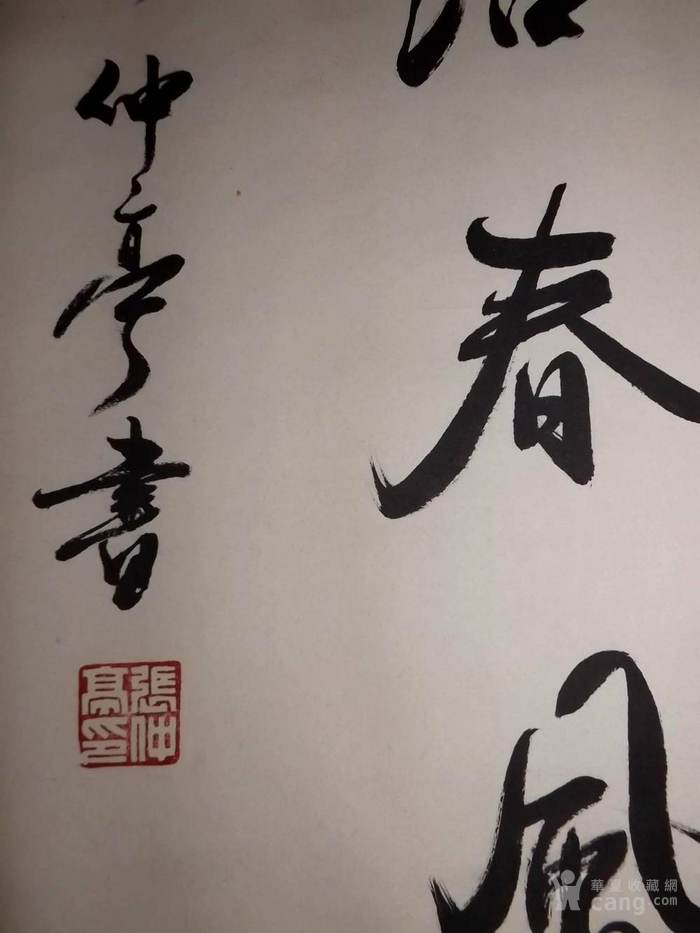 春風
仲亭書
張仲亭印
華夏收藏網
cang.com